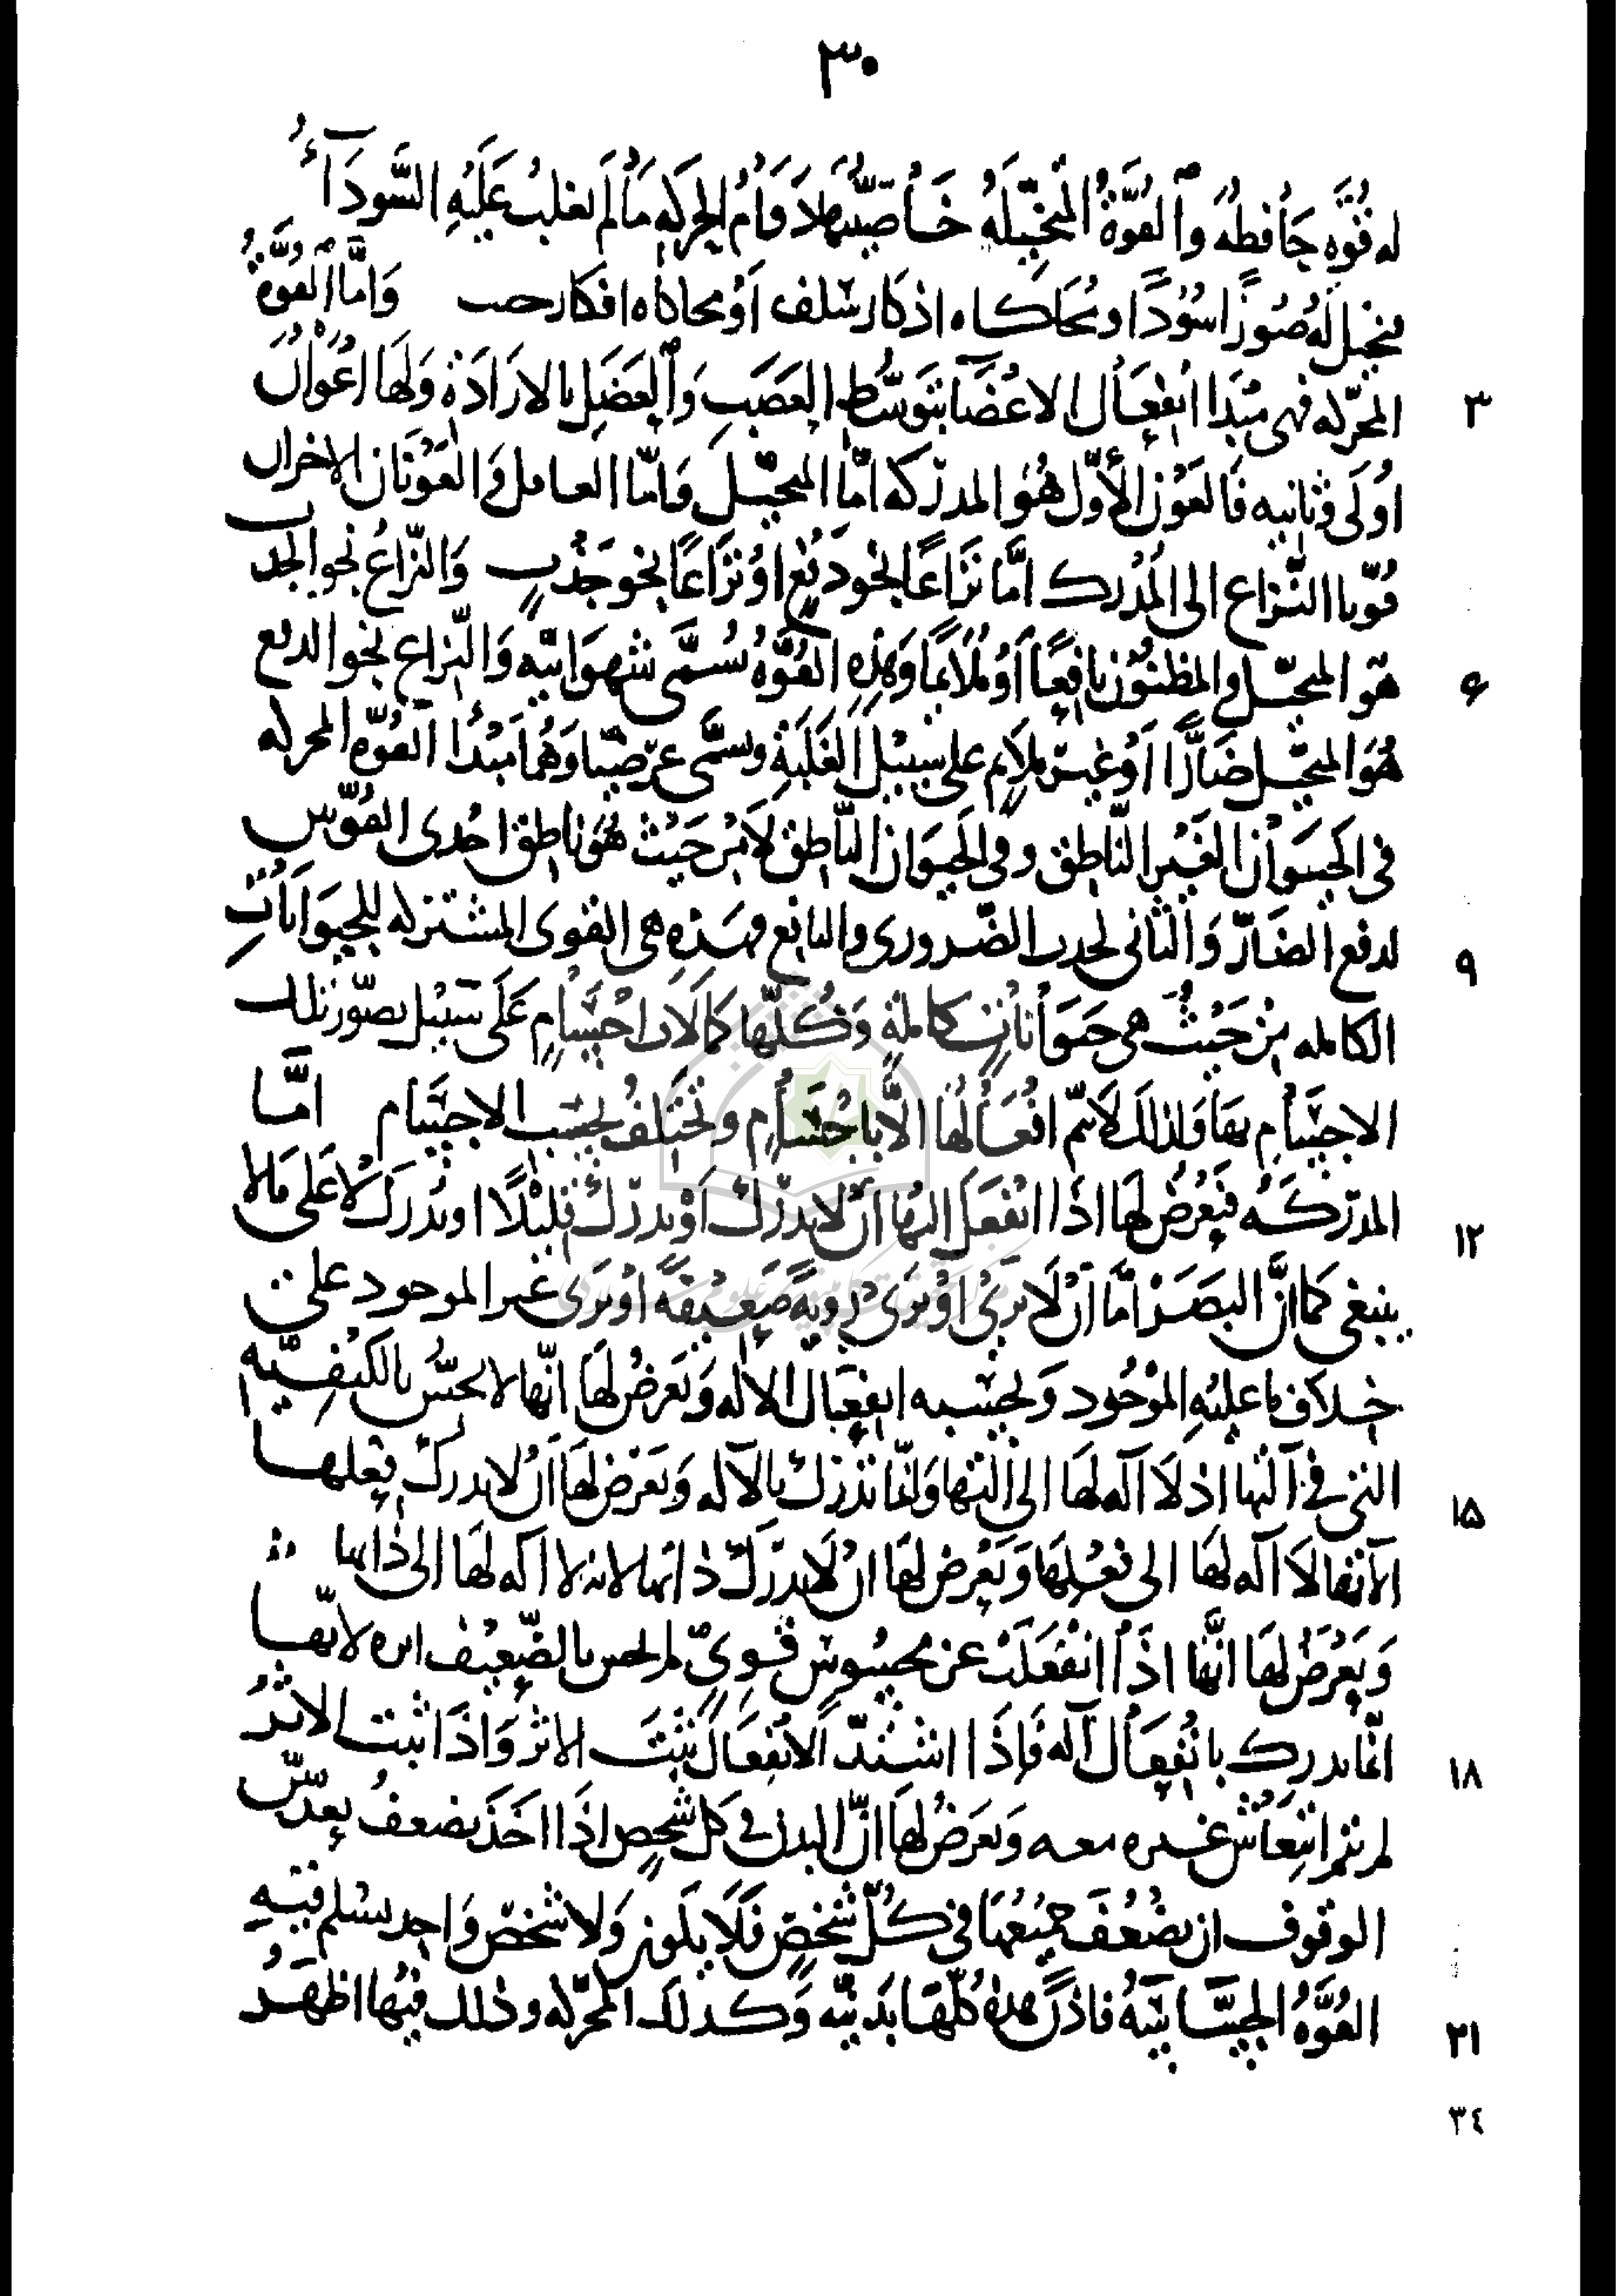 ٣٠
له قوة حافظه والقوة المتخيله خاصيتها دوام الحركه ما لم تغلب عليه السوداء
فتخيل له صورا سودا ومحاكاه اذكار سلف او محاكاه افكار واما القوة
المحركه فهى مبدا انفعال الاعضا بتوسط العصب والعضل بالارادة ولها اعوان
٣
اولى وثانيه فالعون الاول هو المدركه اما المتخيل واما العامل والعونان الاخران
قوتا النزاع الى المدرك اما نزاعا نحو دفع او نزاعا نحو جذب والنزاع نحو الجذب
هو المتخيل والمظنون نافعا او ملايما وهذه القوة تسمى شهوانيه والنزاع نحو الدفع
۶
هو المتخيل ضارا او غير ملايم على سبيل الغلبة وتسمى غضبيا وهما مبدا القوه المحركه
فى الحيوان الغير الناطق وفى الحيوان الناطق لا من حيث هو ناطق احدى القوتين
لدفع الضار والثانى لجذب الضرورى والنافع فهذه هى القوى المشتركه للحيوانات
٩
الكامله من حيث هى حيوانات كاملة وكلها كمالات اجسام على سبيل تصور تلك
الاجسام بها ولذلك لا تتم افعالها الا باجسام وتختلف بحسب الاجسام اما
المدركه فيعرض لها اذا انفعل التها ان لا تدرك او تدرك قليلا او تدرك لا على ما لا
١٢
ينبغى كما ان البصر اما ان لا يرى او يرى روية ضعيفة او يرى غير الموجود على
خلاف ما عليه الموجود وبحسب انفعال الاله ويعرض لها انها لا تحس بالكيفيه
التى فى آلتها اذ لا آله لها الى آلتها وانما تدرك بالآله ويعرض لها ان لا تدرك فعلها
١۵
لانها لا آله لها الى فعلها ويعرض لها ان لا تدرك ذاتها لانه لا آله لها الى ذاتها
ويعرض لها انها اذا انفعلت عن محسوس قوى لم تحس بالضعيف اثره لانها
انما تدرك بانفعال آله فاذا اشتد الانفعال ثبت الاثر واذا ثبت الاثر
١٨
لم يتم انتعاش غيره معه ويعرض لها ان البدن فى كل شخص اذا اخذ يضعف بعد سن
الوقوف ان يضعف جميعها فى كل شخص فلا يكون ولا شخص واحد تسلم فيه
القوة الحساسية فاذن هذه كلها بدنيه وكذلك المحركه وذلك فيها اظهر
٢١
٣٤